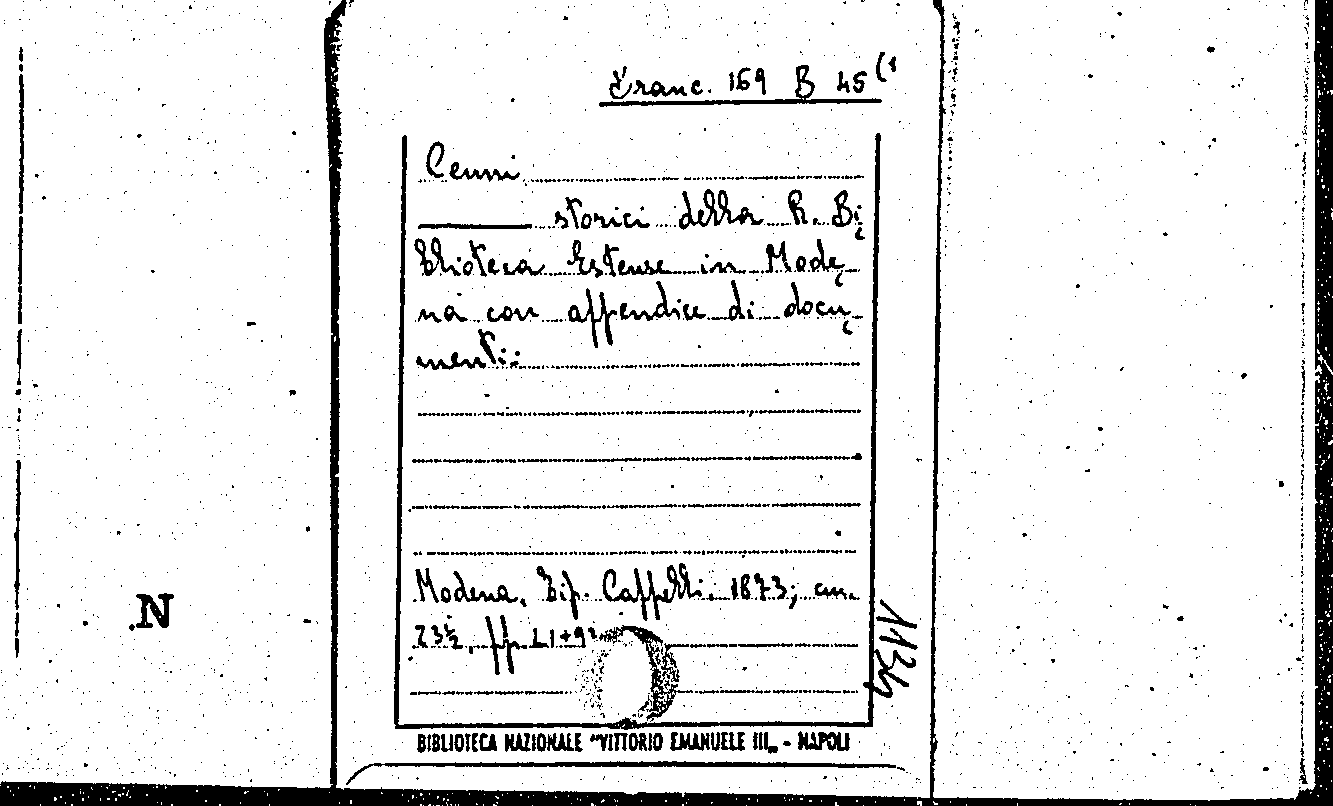 Franc. 169 B 45 (1
Cenni
storici della R. Bi
blioteca Estense in Mode
na con appendice di docu
menti:
Modena, Tip. Cappelli. 1873; cm.
23½, pp. LI+9
N
BIBLIOTECA NAZIONALE "VITTORIO EMANUELE III„ - NAPOLI